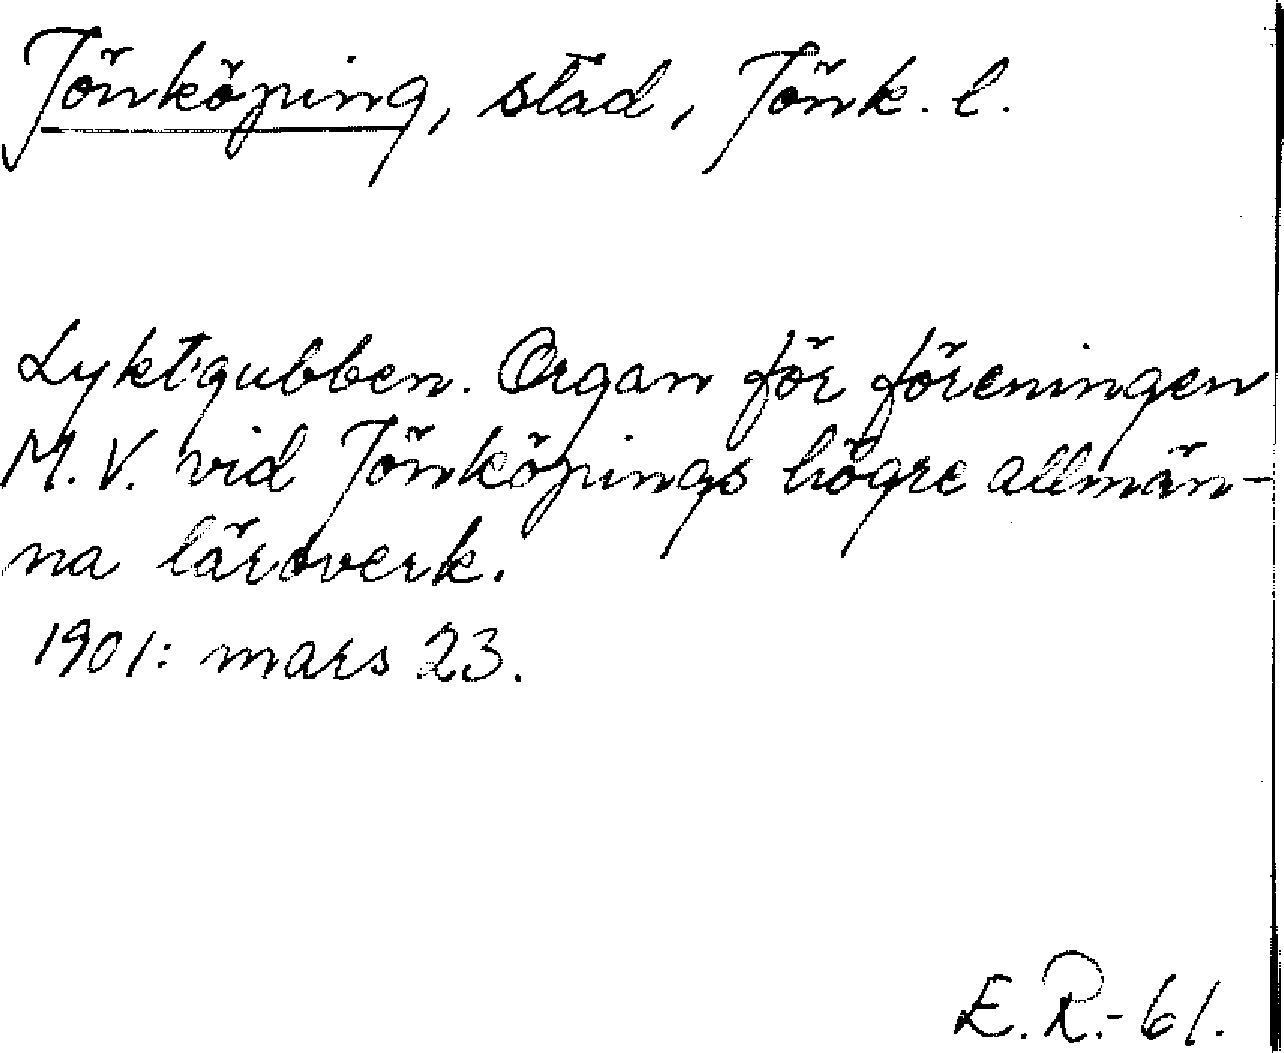 Jönköping, stad, Jönk. l.
Lyktgubben. Organ för föreningen
M. V. vid Jönköpings högre allmän-
na läroverk.
1901: mars 23.
E. R.- 61.